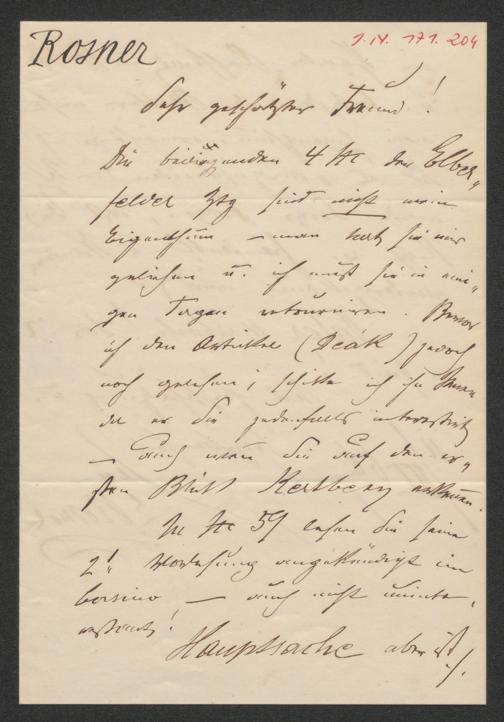 Rosner
1. IV. 171. 204
Sehr geschätzter Freund!
Die beiliegenden 4 № der Elber„
felder Ztg sind nicht mein
Eigenthum – man hat sie mir
geliehen u. ich muß sie in eini„
gen Tagen retourniren. Bevor
ich den Artikel (Deák) jedoch
noch gelesen, schicke ich ihn Ihnen
da er Sie jedenfalls interessirt
– Auch wenn Sie auf den er„
sten Blick Kertbeny erkennen.
In № 59 lesen Sie seine
2te Vorlesung angekündigt im
Casino – auch nicht uninte„
ressant!
Hauptsache aber ist